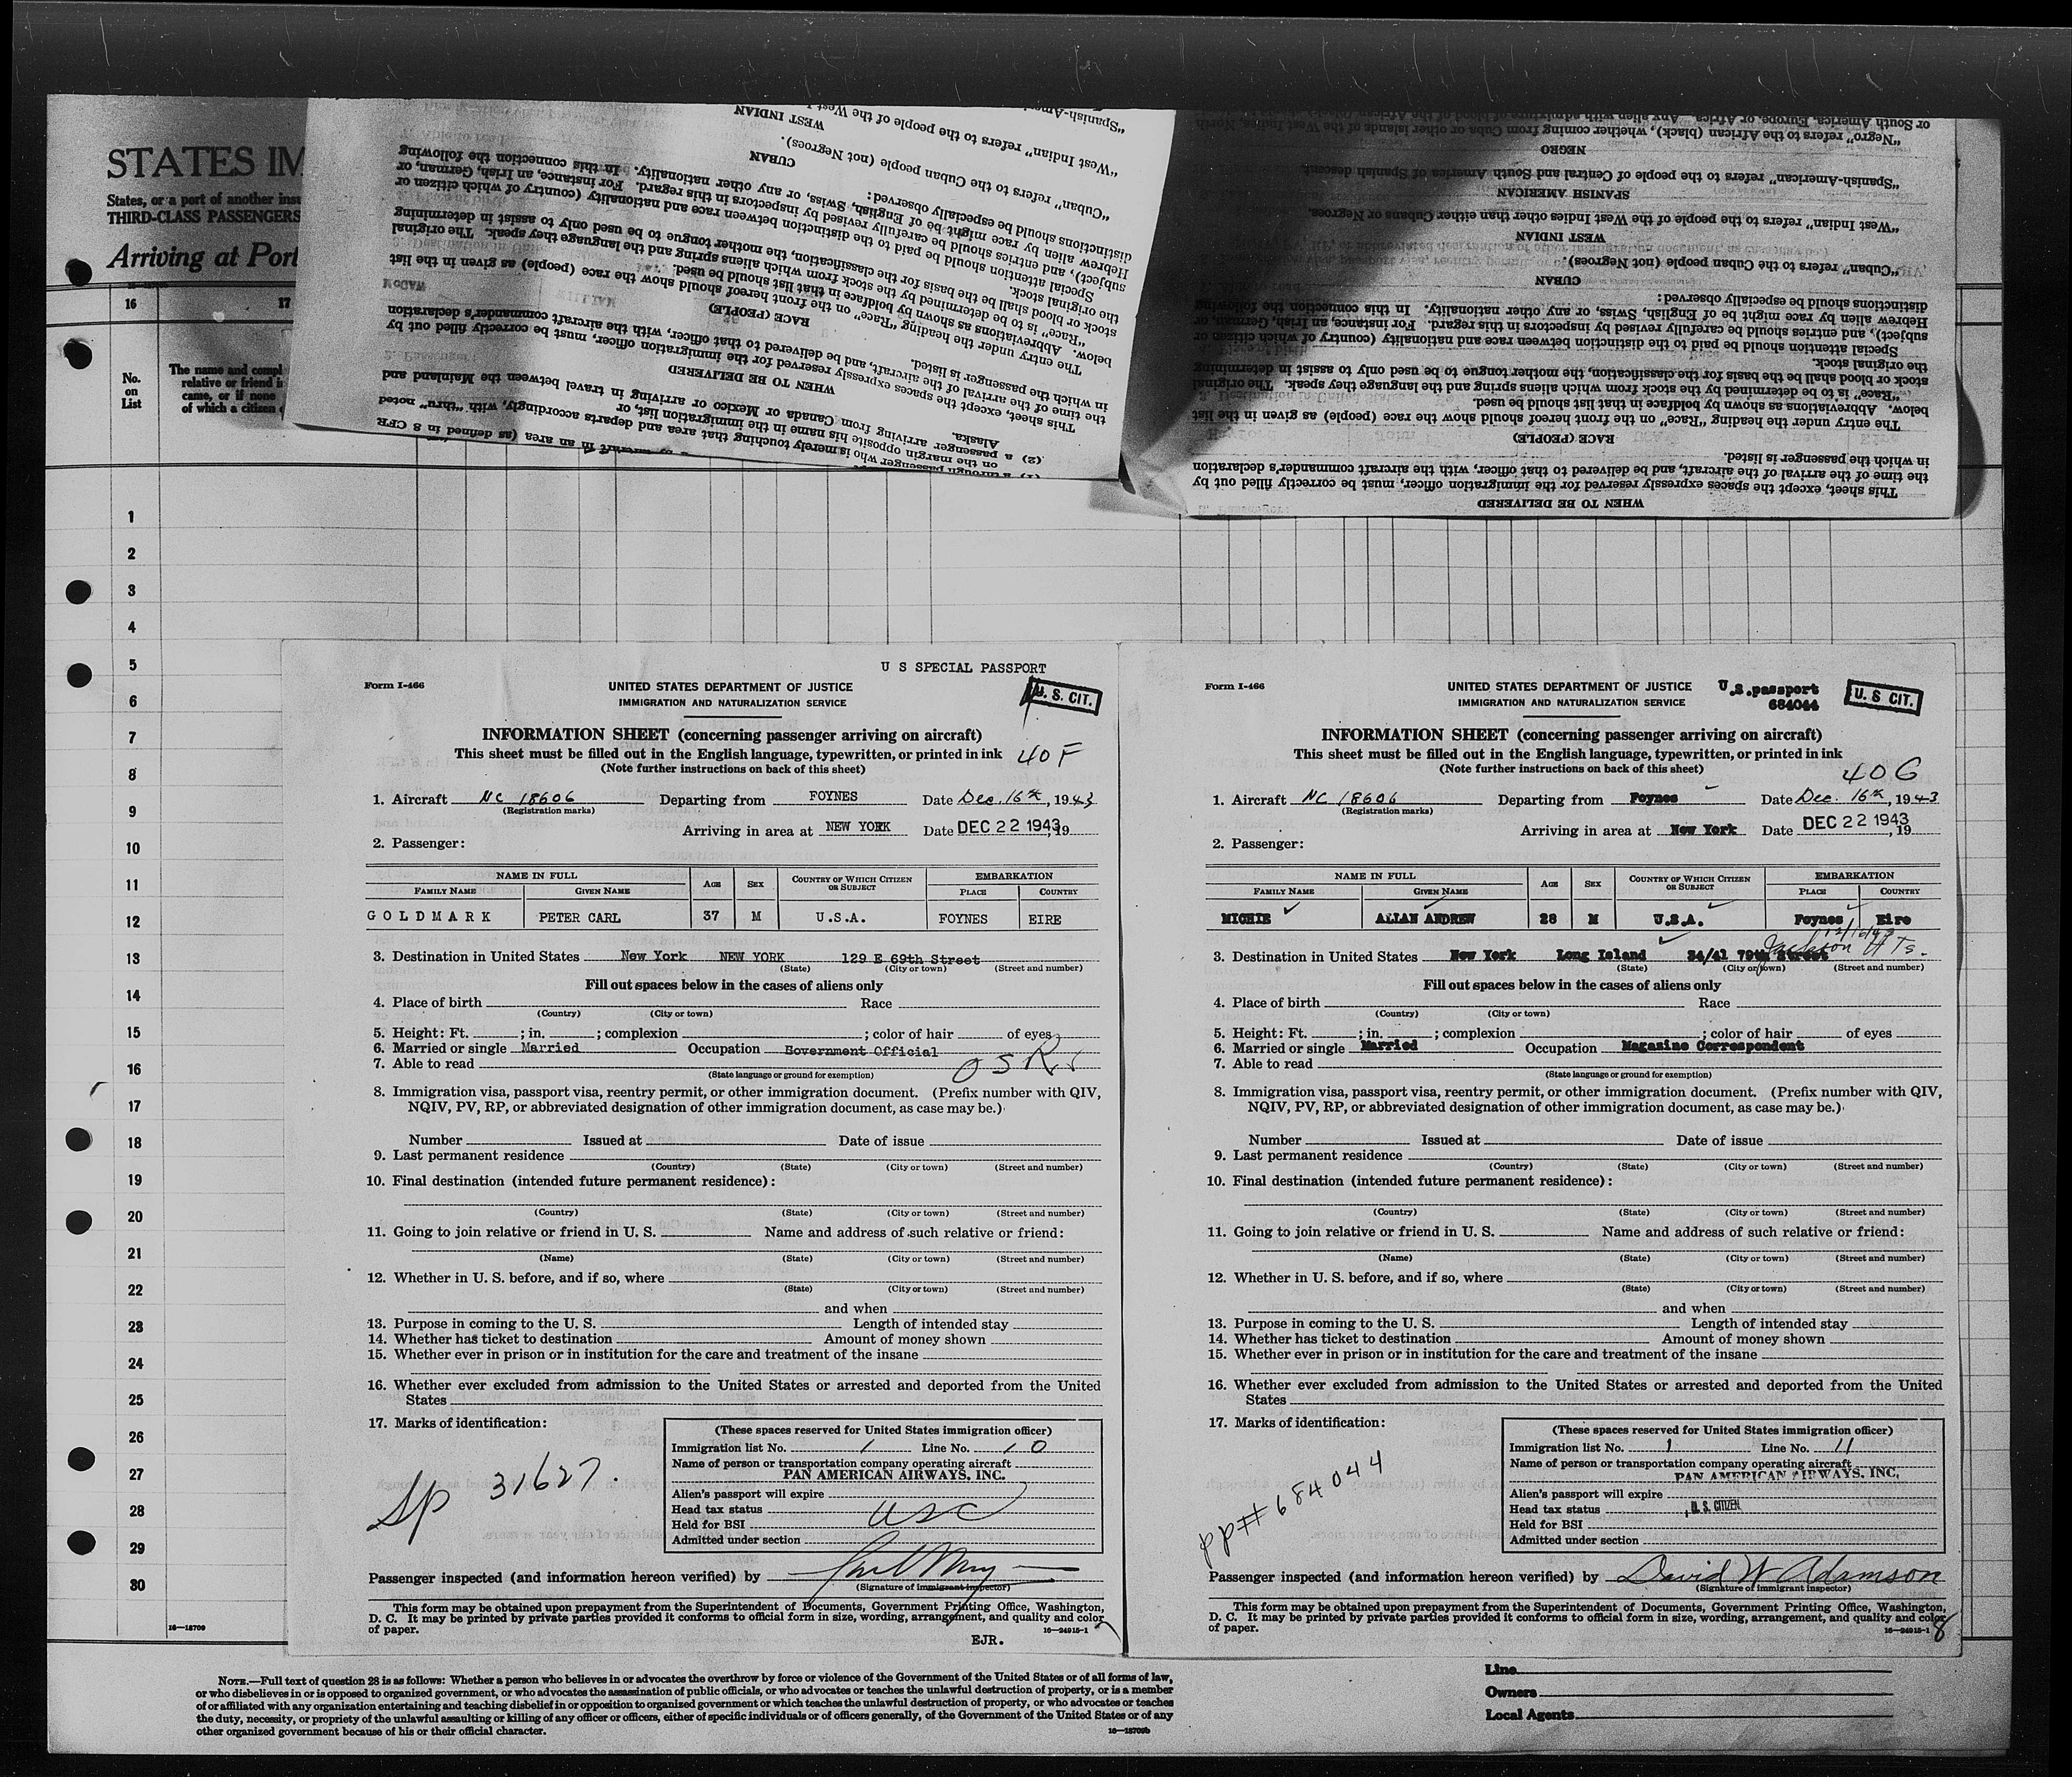 STATES IM
States, or a part of another ins
THIRD-CLASS PASSENGERS
Arriving at Port
16
17
No.
on
List
The name and compl
relative or friend i
came, or if none
of which a citizen
"Spanish-Amer
WEST INDIAN
"West Indian" refers to the people of the West
CUBAN
"Cuban" refers to the Cuban people (not Negroes).
distinctions should be especially observed:
Hebrew alien by race might be of English, Swiss, or any other nationality. In this connection the following
subject), and entries should be carefully revised by inspectors in this regard. For instance, an Irish, German, or
Special attention should be paid to the distinction between race and nationality (country of which citizen or
the original stock.
stock or blood shall be the basis for the classification, the mother tongue to be used only to assist in determining
"Race" is to be determined by the stock from which aliens spring and the language they speak. The original
below. Abbreviations as shown by boldface in that list should be used.
The entry under the heading "Race" on the front hereof should show the race (people) as given in the list
RACE (PEOPLE)
in which the passenger is listed.
the time of the arrival of the aircraft, and be delivered to that officer, with the aircraft commander's declaration
This sheet, except the spaces expressly reserved for the immigration officer, must be correctly filled out by
WHEN TO BE DELIVERED
Alaska.
(2) a passenger arriving from Canada or Mexico or arriving in travel between the Mainland and
on the margin opposite his name in the immigration list, or
who is merely touching that area and departs accordingly, with "thru" noted
in an area (as defined in 8 CFR
or South America, Europe, or Africa. Any alien with admixture of blood of the African (black)
"Negro" refers to the African (black), whether coming from Cuba or other islands of the West Indies, North
NEGRO
"Spanish-American" refers to the people of Central and South America of Spanish descent.
SPANISH AMERICAN
"West Indian" refers to the people of the West Indies other than either Cubans or Negroes.
WEST INDIAN
"Cuban" refers to the Cuban people (not Negroes).
CUBAN
distinctions should be especially observed:
Hebrew alien by race might be of English, Swiss, or any other nationality. In this connection the following
subject), and entries should be carefully revised by inspectors in this regard. For instance, an Irish, German, or
Special attention should be paid to the distinction between race and nationality (country of which citizen or
the original stock.
stock or blood shall be the basis for the classification, the mother tongue to be used only to assist in determining
"Race" is to be determined by the stock from which aliens spring and the language they speak. The original
below. Abbreviations as shown by boldface in that list should be used.
The entry under the heading "Race" on the front hereof should show the race (people) as given in the list
RACE (PEOPLE)
in which the passenger is listed.
the time of the arrival of the aircraft, and be delivered to that officer, with the aircraft commander's declaration
This sheet, except the spaces expressly reserved for the immigration officer, must be correctly filled out by
WHEN TO BE DELIVERED
1
2
3
4
5
6
7
8
9
10
11
12
13
14
15
16
17
18
19
20
21
22
23
24
25
26
27
28
29
30
16—18709
U S SPECIAL PASSPORT
Form I-466
UNITED STATES DEPARTMENT OF JUSTICE
IMMIGRATION AND NATURALIZATION SERVICE
U. S. CIT.
INFORMATION SHEET (concerning passenger arriving on aircraft)
This sheet must be filled out in the English language, typewritten, or printed in ink 40F
(Note further instructions on back of this sheet)
1. Aircraft NC 18606 Departing from FOYNES Date Dec. 16th, 1943
(Registration marks)
Arriving in area at NEW YORK Date DEC 22 1943, 19
2. Passenger:
NAME IN FULL AGE SEX COUNTRY OF WHICH CITIZEN OR SUBJECT EMBARKATION
FAMILY NAME GIVEN NAME PLACE COUNTRY
GOLDMARK PETER CARL 37 M U.S.A. FOYNES EIRE
3. Destination in United States New York NEW YORK 129 E 69th Street
(State) (City or town) (Street and number)
Fill out spaces below in the cases of aliens only
4. Place of birth Race
(Country) (City or town)
5. Height: Ft. ; in. ; complexion ; color of hair of eyes
6. Married or single Married Occupation Government Official
7. Able to read
(State language or ground for exemption)
8. Immigration visa, passport visa, reentry permit, or other immigration document. (Prefix number with QIV,
NQIV, PV, RP, or abbreviated designation of other immigration document, as case may be.)
Number Issued at Date of issue
9. Last permanent residence
(Country) (State) (City or town) (Street and number)
10. Final destination (intended future permanent residence):
(Country) (State) (City or town) (Street and number)
11. Going to join relative or friend in U. S. Name and address of such relative or friend:
(Name) (State) (City or town) (Street and number)
12. Whether in U. S. before, and if so, where
(State) (City or town) (Street and number)
and when
13. Purpose in coming to the U. S. Length of intended stay
14. Whether has ticket to destination Amount of money shown
15. Whether ever in prison or in institution for the care and treatment of the insane
16. Whether ever excluded from admission to the United States or arrested and deported from the United
States
17. Marks of identification:
Sp 31627.
(These spaces reserved for United States immigration officer)
Immigration list No. 1 Line No. 10
Name of person or transportation company operating aircraft
PAN AMERICAN AIRWAYS, INC.
Alien's passport will expire
Head tax status USC
Held for BSI
Admitted under section
Passenger inspected (and information hereon verified) by
(Signature of immigrant inspector)
This form may be obtained upon prepayment from the Superintendent of Documents, Government Printing Office, Washington,
D. C. It may be printed by private parties provided it conforms to official form in size, wording, arrangement, and quality and color
of paper.
16—24915-1
EJR.
Form I-466
UNITED STATES DEPARTMENT OF JUSTICE
IMMIGRATION AND NATURALIZATION SERVICE
U.S.passport
684044
U. S. CIT.
INFORMATION SHEET (concerning passenger arriving on aircraft)
This sheet must be filled out in the English language, typewritten, or printed in ink
(Note further instructions on back of this sheet)
40G
1. Aircraft NC 18606 Departing from Foynes Date Dec. 16th, 1943
(Registration marks)
Arriving in area at New York Date DEC 22 1943, 19
2. Passenger:
NAME IN FULL AGE SEX COUNTRY OF WHICH CITIZEN OR SUBJECT EMBARKATION
FAMILY NAME GIVEN NAME PLACE COUNTRY
MICHIE ALLAN ANDREW 28 M U.S.A. Foynes Eire
12/16/43
Jackson HTs.
3. Destination in United States New York Long Island 34/41 79th Street
(State) (City or town) (Street and number)
Fill out spaces below in the cases of aliens only
4. Place of birth Race
(Country) (City or town)
5. Height: Ft. ; in. ; complexion ; color of hair of eyes
6. Married or single Married Occupation Magazine Correspondent
7. Able to read
(State language or ground for exemption)
8. Immigration visa, passport visa, reentry permit, or other immigration document. (Prefix number with QIV,
NQIV, PV, RP, or abbreviated designation of other immigration document, as case may be.)
Number Issued at Date of issue
9. Last permanent residence
(Country) (State) (City or town) (Street and number)
10. Final destination (intended future permanent residence):
(Country) (State) (City or town) (Street and number)
11. Going to join relative or friend in U. S. Name and address of such relative or friend:
(Name) (State) (City or town) (Street and number)
12. Whether in U. S. before, and if so, where
(State) (City or town) (Street and number)
and when
13. Purpose in coming to the U. S. Length of intended stay
14. Whether has ticket to destination Amount of money shown
15. Whether ever in prison or in institution for the care and treatment of the insane
16. Whether ever excluded from admission to the United States or arrested and deported from the United
States
17. Marks of identification:
pp# 684044
(These spaces reserved for United States immigration officer)
Immigration list No. 1 Line No. 11
Name of person or transportation company operating aircraft
PAN AMERICAN AIRWAYS, INC.
Alien's passport will expire
Head tax status U. S. CITIZEN
Held for BSI
Admitted under section
Passenger inspected (and information hereon verified) by David W Adamson
(Signature of immigrant inspector)
This form may be obtained upon prepayment from the Superintendent of Documents, Government Printing Office, Washington,
D. C. It may be printed by private parties provided it conforms to official form in size, wording, arrangement, and quality and color
of paper.
16—24915-1
8
NOTE.—Full text of question 28 is as follows: Whether a person who believes in or advocates the overthrow by force or violence of the Government of the United States or of all forms of law,
or who disbelieves in or is opposed to organized government, or who advocates the assassination of public officials, or who advocates or teaches the unlawful destruction of property, or is a member
of or affiliated with any organization entertaining and teaching disbelief in or opposition to organized government or which teaches the unlawful destruction of property, or who advocates or teaches
the duty, necessity, or propriety of the unlawful assaulting or killing of any officer or officers, either of specific individuals or of officers generally, of the Government of the United States or of any
other organized government because of his or their official character.
16—18709b
Line
Owners
Local Agents